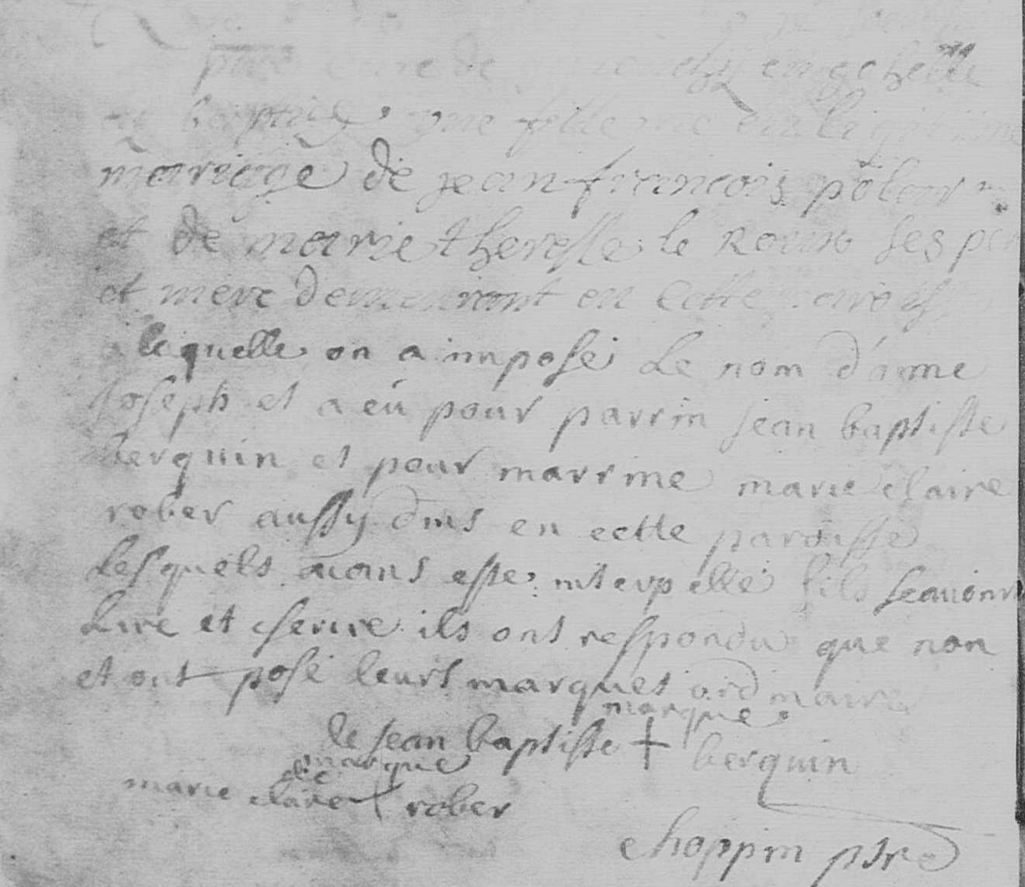 en gohelle
une fille née en legitime
mariage de jean francois
et de marie theresse le roux ses
et mere demeurant en cette
a lequelle on a imposé Le nom d'anne
Joseph et a eü pour parrin jean baptiste
berquin et pour marrine marie claire
rober aussy dms en cette paroisse
Lesquels aians esté interpellé sils scauoint
Lire et escrire ils ont respondu que non
et ont posé leurs marques ordinaire
marque
de jean baptiste + berquin
marque de
marie claire + rober
choppin ptre